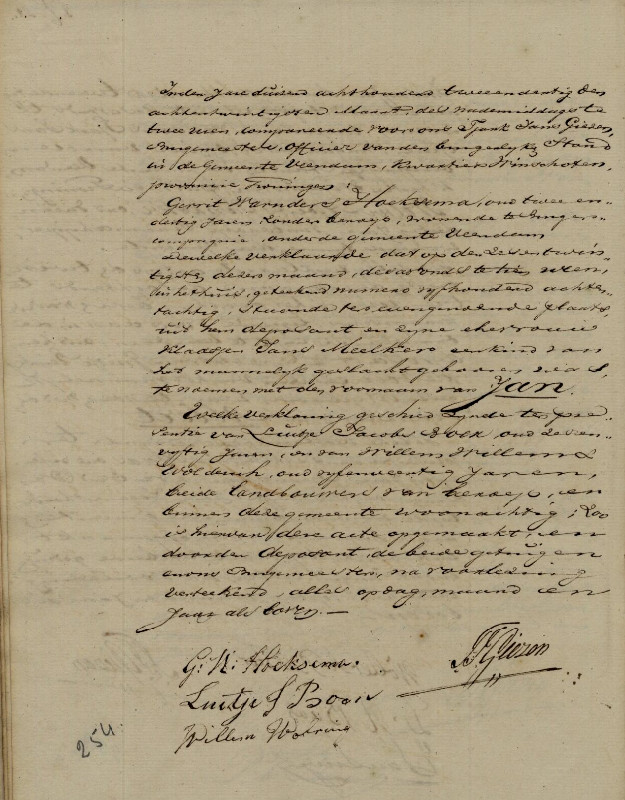 In den Jare duizend achthonderd twee en dertig den
achtentwintigsten Maart, des nademiddags te
twee uren, compareerde voor ons Tjark Jans Giezen,
Burgemeester, Officier van den burgerlyke Stand
in de Gemeente Veendam, Kwartier Winschoten,
provincie Groningen:
Gerrit Harnders Hoeksema, oud twee en
dertig Jaren, zonder beroep, wonende te
compagnie onder de gemeente Veendam
Dewelke verklaarde dat op den zesentwin-
tigsten dezer maand, des avonds te tien uren,
in het huis, geteekend numero vyfhonderd achten-
tachtig, staande ter evengenoemde plaats
uit hem deposant en zyne ehevrouw
Klaassjen Jans Meelker een kind van
het mannelyk geslacht geboren was,
te noemen met den voornaam van Jan.
Welke verklaring geschied zynde ter pre-
sentie van Luitje Jacobs Boon, oud zeven-
vyftig Jaren, en van Willem Willems
oud vyfenveertig Jaren,
beide landbouwers van beroep, en
binnen deze gemeente woonachtig; Zoo
is hiervan deze acte opgemaakt, en
door den deposant, de beide getuigen
en ons Burgemeester, na voorlezing
verteekend, alles op dag, maand en
Jaar als boven.—
G. H. Hoeksema.
Giezen
Luitje J Boon
Willem
254.